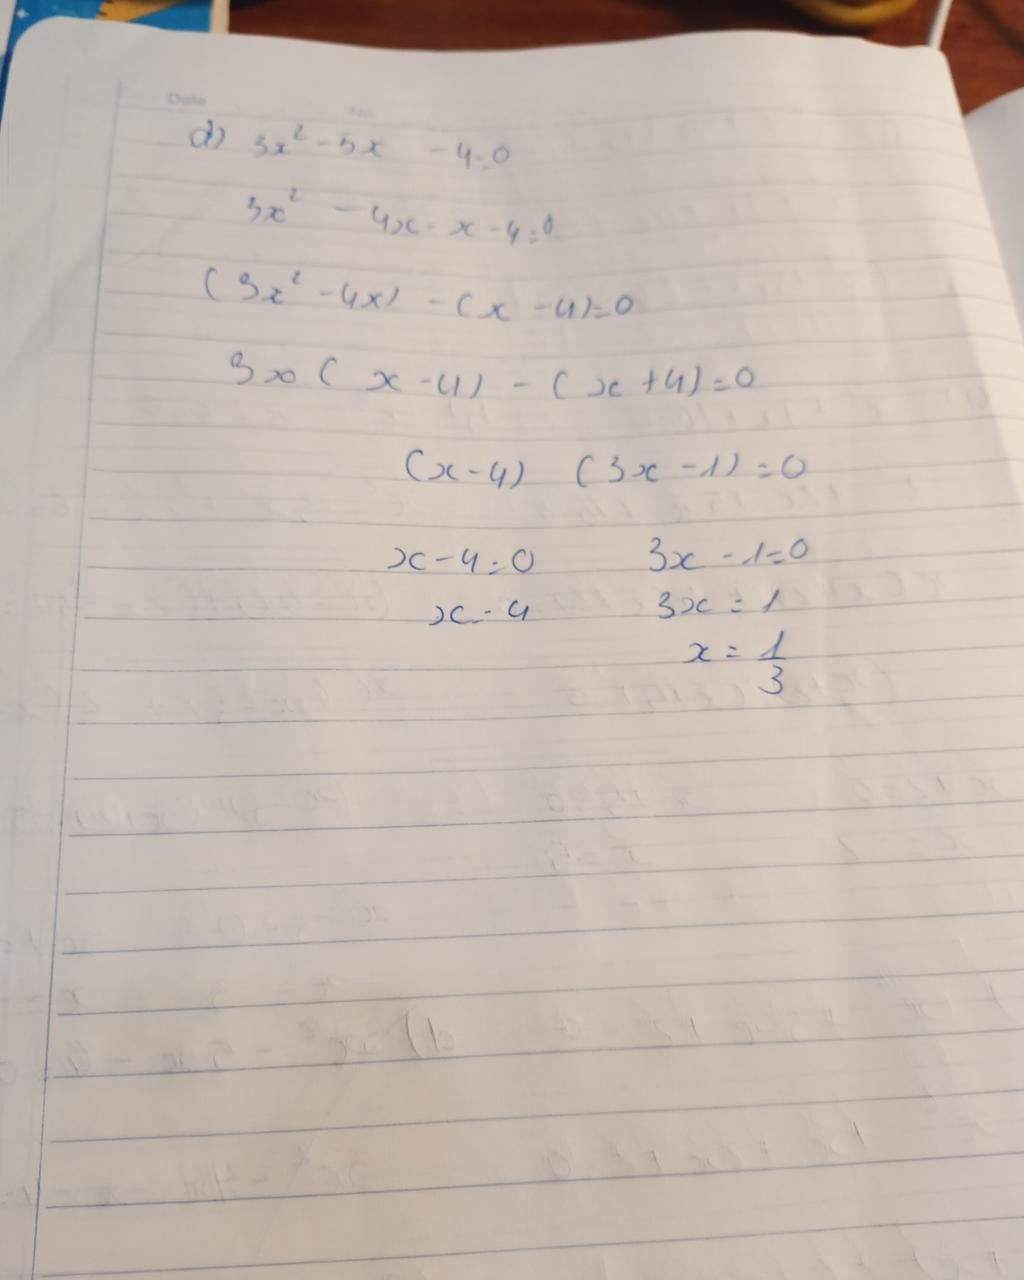 Date
d) 3x² - 5x - 4=0
3x² - 4x - x - 4=0
(3x² - 4x) - (x - 4)=0
3x ( x - 4) - ( x + 4) = 0
(x - 4) (3x - 1) = 0
x - 4 = 0 3x - 1 = 0
x = 4 3x = 1
x = 1/3